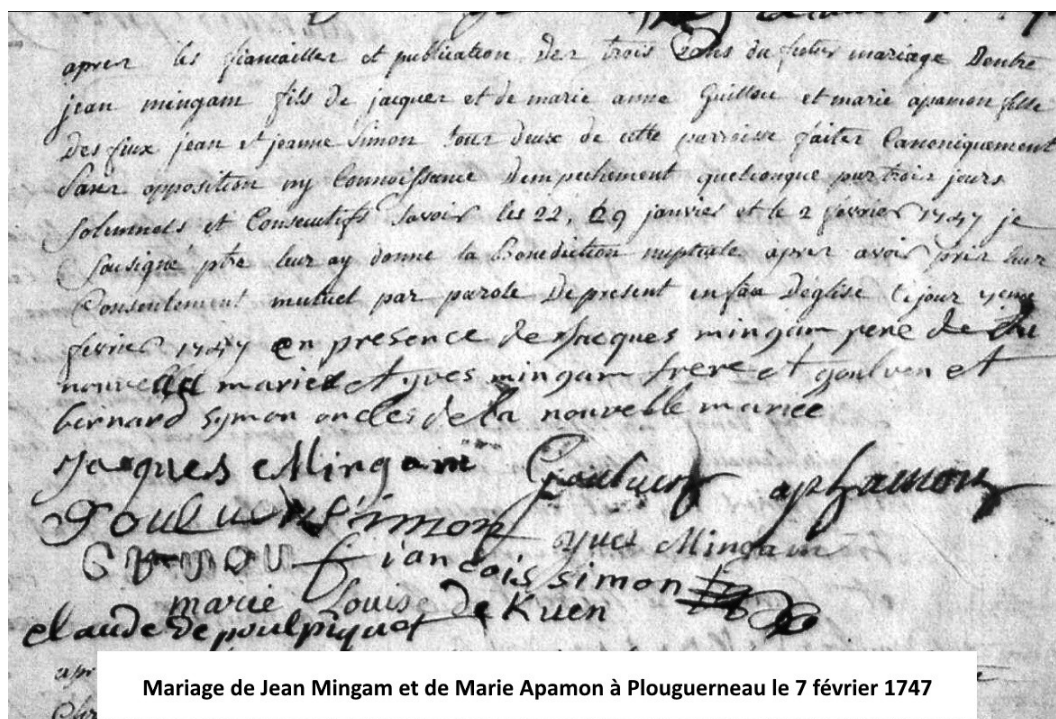 apres les fiancailles et publication des trois bans du futur mariage Dentre
jean mingam fils de jacques et de marie anne Guillou et marie apamon fille
des feux jean et jeanne Simon tous deux de cette parroisse faites Canoniquement
sans opposition ny Connoissance Dempechement quelconque par trois jours
solemnels et Consecutifs Savoir les 22, 29 janvier et le 2 fevrier 1747 je
Sousigné ptre leur ay donne la Benediction nuptiale apres avoir pris leur
Consentement mutuel par parole De present en D'eglise ce jour
fevrier 1747 en presence de Jacques mingam pere
nouveau marie et yves mingam frere et goulven et
bernard symon oncles de la nouvelle mariee
Jacques Mingam Goulven aphamon
Goulven Simon
yves Mingam
francois simon
marie Louise De Kuen
claude De poulpiquet
Mariage de Jean Mingam et de Marie Apamon à Plouguerneau le 7 février 1747